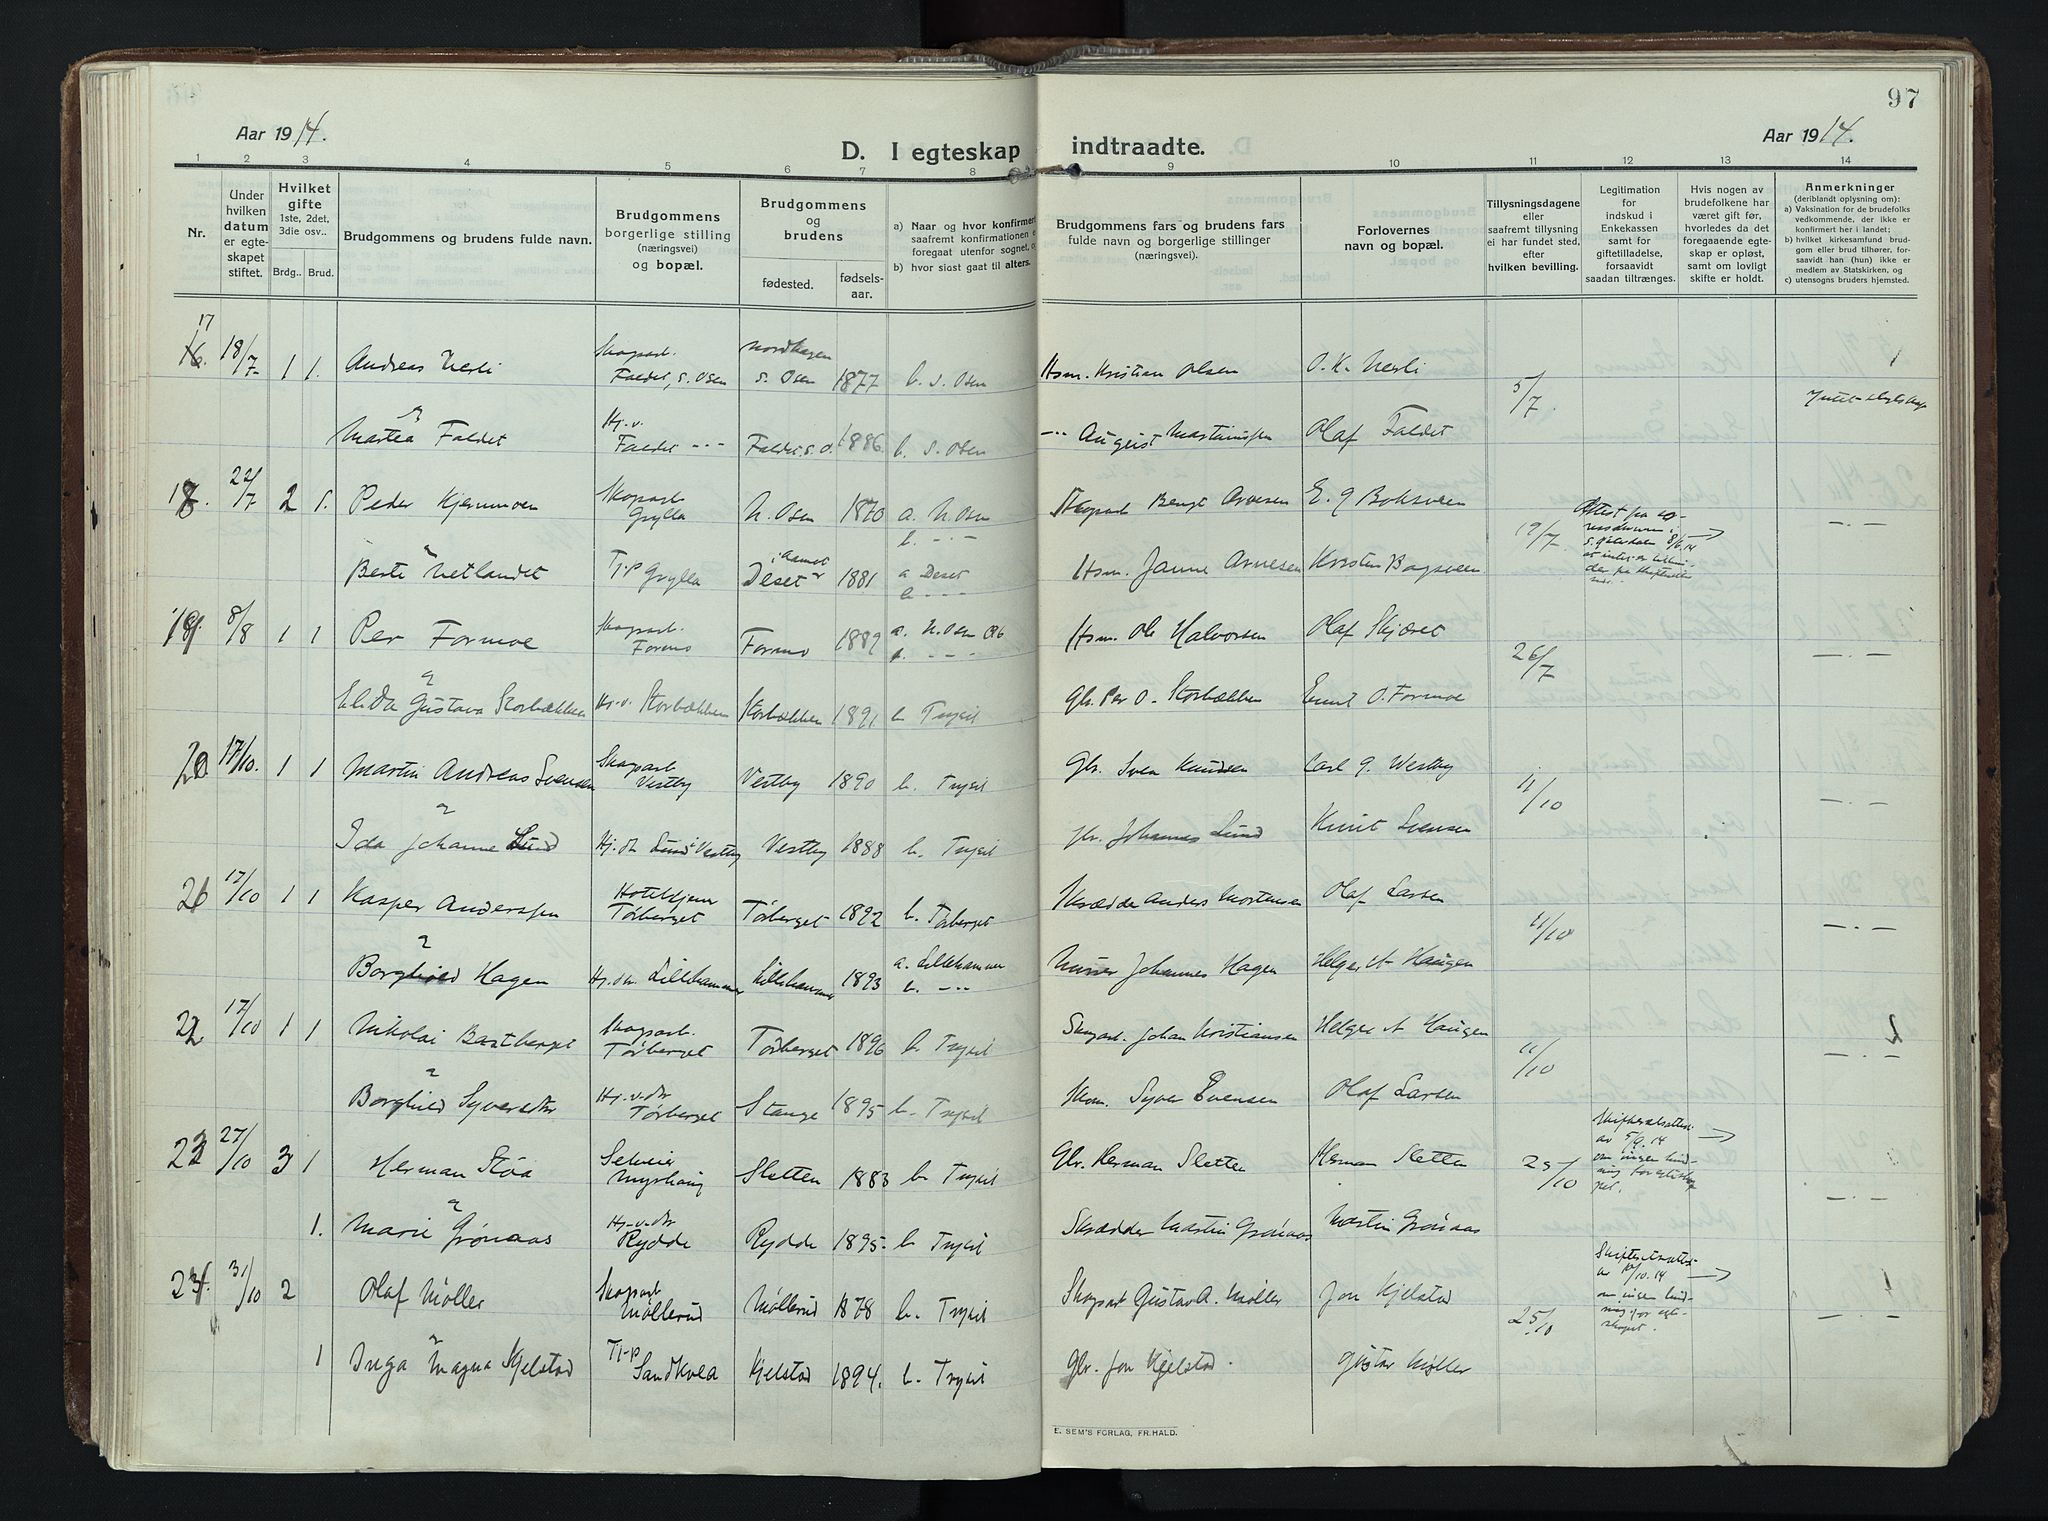 97
Aar 1914.
D. I egteskap indtraadte.
Aar 1914.
1 2 3 4 5 6 7 8 9 10 11 12 13 14
Nr.
Under hvilken datum er egteskapet stiftet.
Hvilket gifte 1ste, 2det, 3die osv..
Brdg.. Brud.
Brudgommens og brudens fulde navn.
Brudgommens borgerlige stilling (næringsvei) og bopæl.
Brudgommens og brudens
fødested. fødselsaar.
a) Naar og hvor konfirmert saafremt konfirmationen e foregaat utenfor sognet, og
b) hvor sisst gaat til alters.
Brudgommens fars og brudens fars fulde navn og borgerlige stillinger (næringsvei).
Forlovernes navn og bopæl.
Tillysningsdagene eller saafremt tillysning ei har fundet sted, efter hvilken bevilling.
Legitimation for indskud i Enkekassen samt for giftetilladelse, forsaavidt saadan tiltrænges.
Hvis nogen av brudefolkene har været gift før, hvorledes da det foregaaende egteskap er opløst, samt om lovligt skifte er holdt.
Anmerkninger (deriblandt oplysning om):
a) Vaksination for de brudefolks vedkommende, der ikke er konfirmert her i landet;
b) hvilket kirkesamfund brudgom eller brud tilhører, forsaavidt han (hun) ikke er medlem av Statskirken, og
c) utensogns bruders hjemsted.
17 18/7 1 1. Andreas Nerli Skogsarb. Faldet, s. Osen Nordhagen s. Osen 1877 b. s. Osen Hsm. Kristian Olsen O. K. Nerli 5/7
Martea Faldet Hj.v. Faldet -"- Faldet s. O. 1886 b. S. Osen -"- August Martinussen Olaf Faldet
18. 22/7 2 1. Peder Kjernmoen Skogsarb Grylla N. Osen 1870 a. N. Osen b. -"- Skogsarb Bengt Arvesen E. G Boksveen 19/7 -"-
Berte Netlandet T-p Grylla Deset i Aamot 1881 a Deset b -"- Hsm. Janne Arnesen Kristen Bagsveen
19. 8/8 1 1 Per Formoe Skogsarb. Formo Formo 1889 a. N. Osen 06 b. -"- Hsm. Ole Halvorsen Olaf Skjæret 26/7 -"-
Elida Gustava Storbækken Hj-v. Storbækken Storbækken 1891 b Trysil Gbr. Per O. Storbækken Emil O. Formoe
20 17/10. 1 1 Martin Andreas Svensen Skogsarb Vestby Vestby 1890 b. Trysil Gbr. Sven Knudsen Carl G. Westby 11/10 -"-
Ida Johanne Lund Hj. dtr Lund Vestby Vestby 1888 b. Trysil Gbr. Johannes Lund Knut Svensen
21 17/10 1 1 Kasper Anderssen Hotelejer Tørberget Tørberget 1892 b. Tørberget Skrædder Anders Mortensen Olaf Larsen 11/10 -"-
Borghild Hagen Hj. dtr. Lillehammer Lillehammer 1893 a. Lillehammer b. -"- Murer Johannes Hagen Helger A Haugen
22 17/10 1 1 Nikolai Bastberget Skogsarb. Tørberget Tørberget 1896 b. Trysil Skogsarb. Johan Kristiansen Helge A Haugen 11/10 -"-
Borghild Syversdtr Hj.v.dtr Tørberget Stange 1895 b. Trysil Hsm. Syver Evensen Olaf Larsen
23 27/10 3 1 Herman Støa Selveier Myrhaug Sletten 1883 b. Trysil Gbr. Herman Sletten Herman Sletten 25/10 -"-
Skifteratsattest av 5/9.14 om ingen hindring for egteskapet.
1. Marie Grønaas Hj-v.dtr Rydde Rydde 1895. b. Trysil Skrædder Martin Grønaas Martin Grønaas
24. 31/10 2 Olaf Møller Skogsarb Møllerud Møllerud 1878 b. Trysil Skogsarb Gustav A. Møller Jon Kjelstad 25/10 -"-
Skifteretsattest av 10/10.14 om ingen hindring for egteskapet.
1 Inga Magna Kjelstad T-p Sandkvea Kjelstad 1894. b. Trysil Gbr. Jon Kjelstad. Gustav Møller
E. SEM'S FORLAG, FR.HALD.